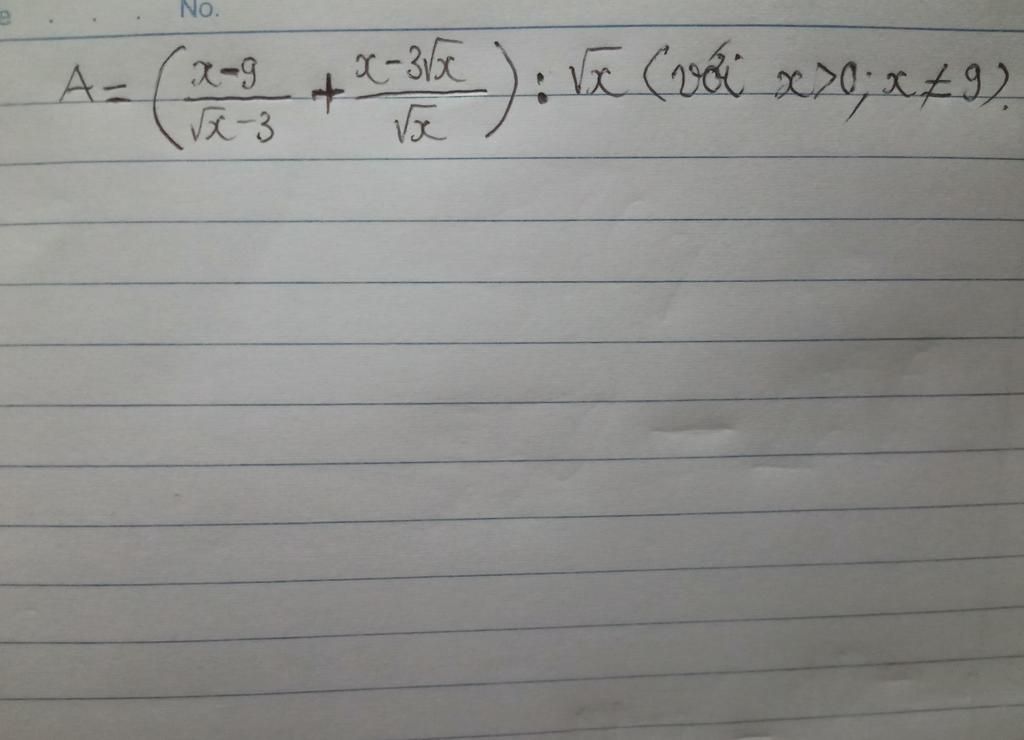 No.
A = ((x-9)/(√x-3) + (x-3√x)/√x) : √x (với x>0; x≠9).